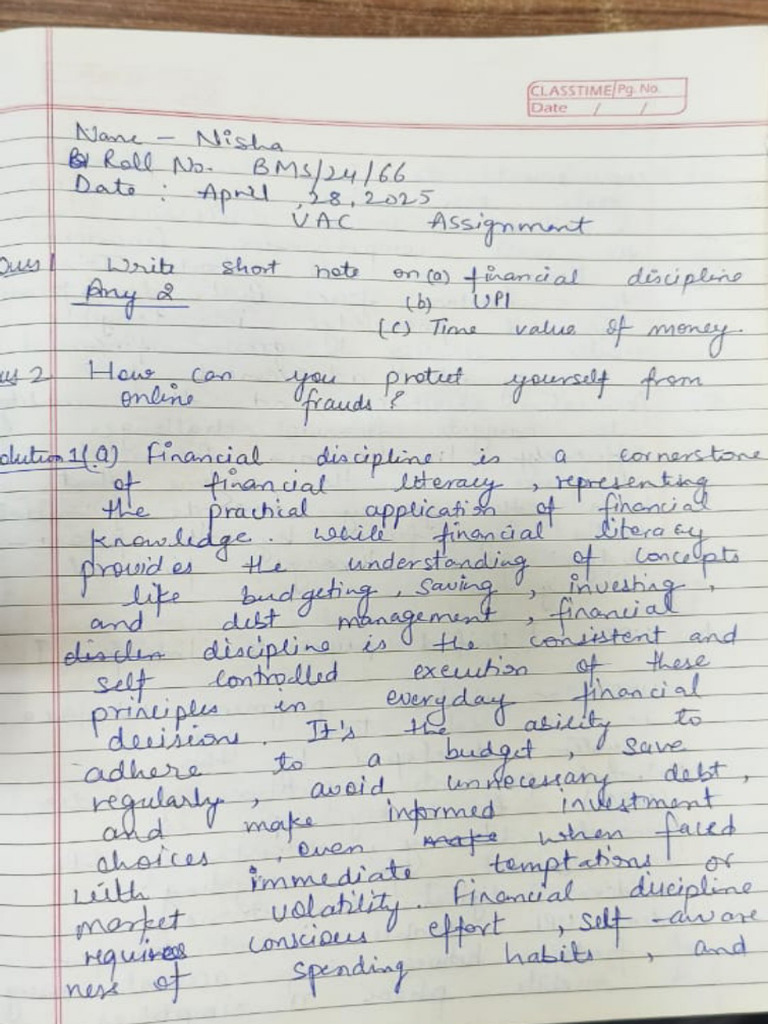 CLASSTIME Pg. No.
Date / /
Name - Nisha
Roll No. BMS/24/66
Date : April ,28, 2025
VAC Assignment
Ques 1 Write short note on (a) financial discipline
Any 2 (b) UPI
(c) Time value of money.
us 2 How can you protect yourself from
online frauds?
olution 1(a) Financial discipline is a cornerstone
of financial literacy, representing
the practical application of financial
knowledge. While financial literacy
provides the understanding of concepts
like budgeting, saving, investing,
and debt management, financial
disclen discipline is the consistent and
self controlled execution of these
principles in everyday financial
decisions. It's the ability to
adhere to a budget, save
regularly, avoid unnecessary debt,
and make informed investment
choices, even make when faced
with immediate temptations or
market volatility. Financial discipline
requires conscious effort, self-aware
ness of spending habits, and